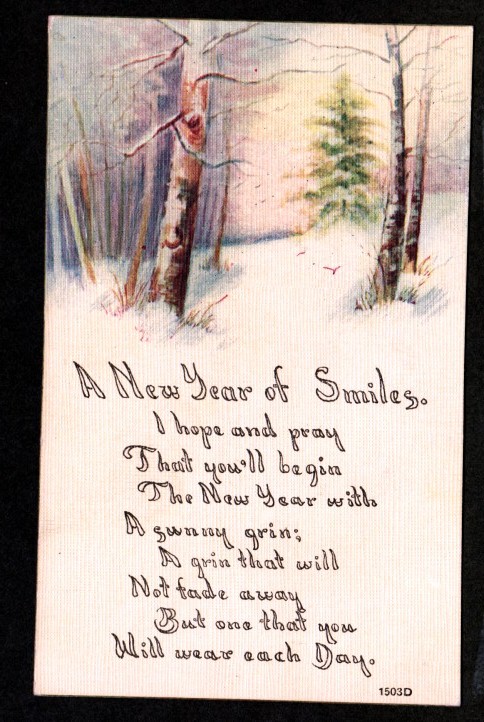 A New Year of Smiles.
I hope and pray
That you'll begin
The New Year with
A sunny grin;
A grin that will
Not fade away
But one that you
Will wear each Day.
1503D